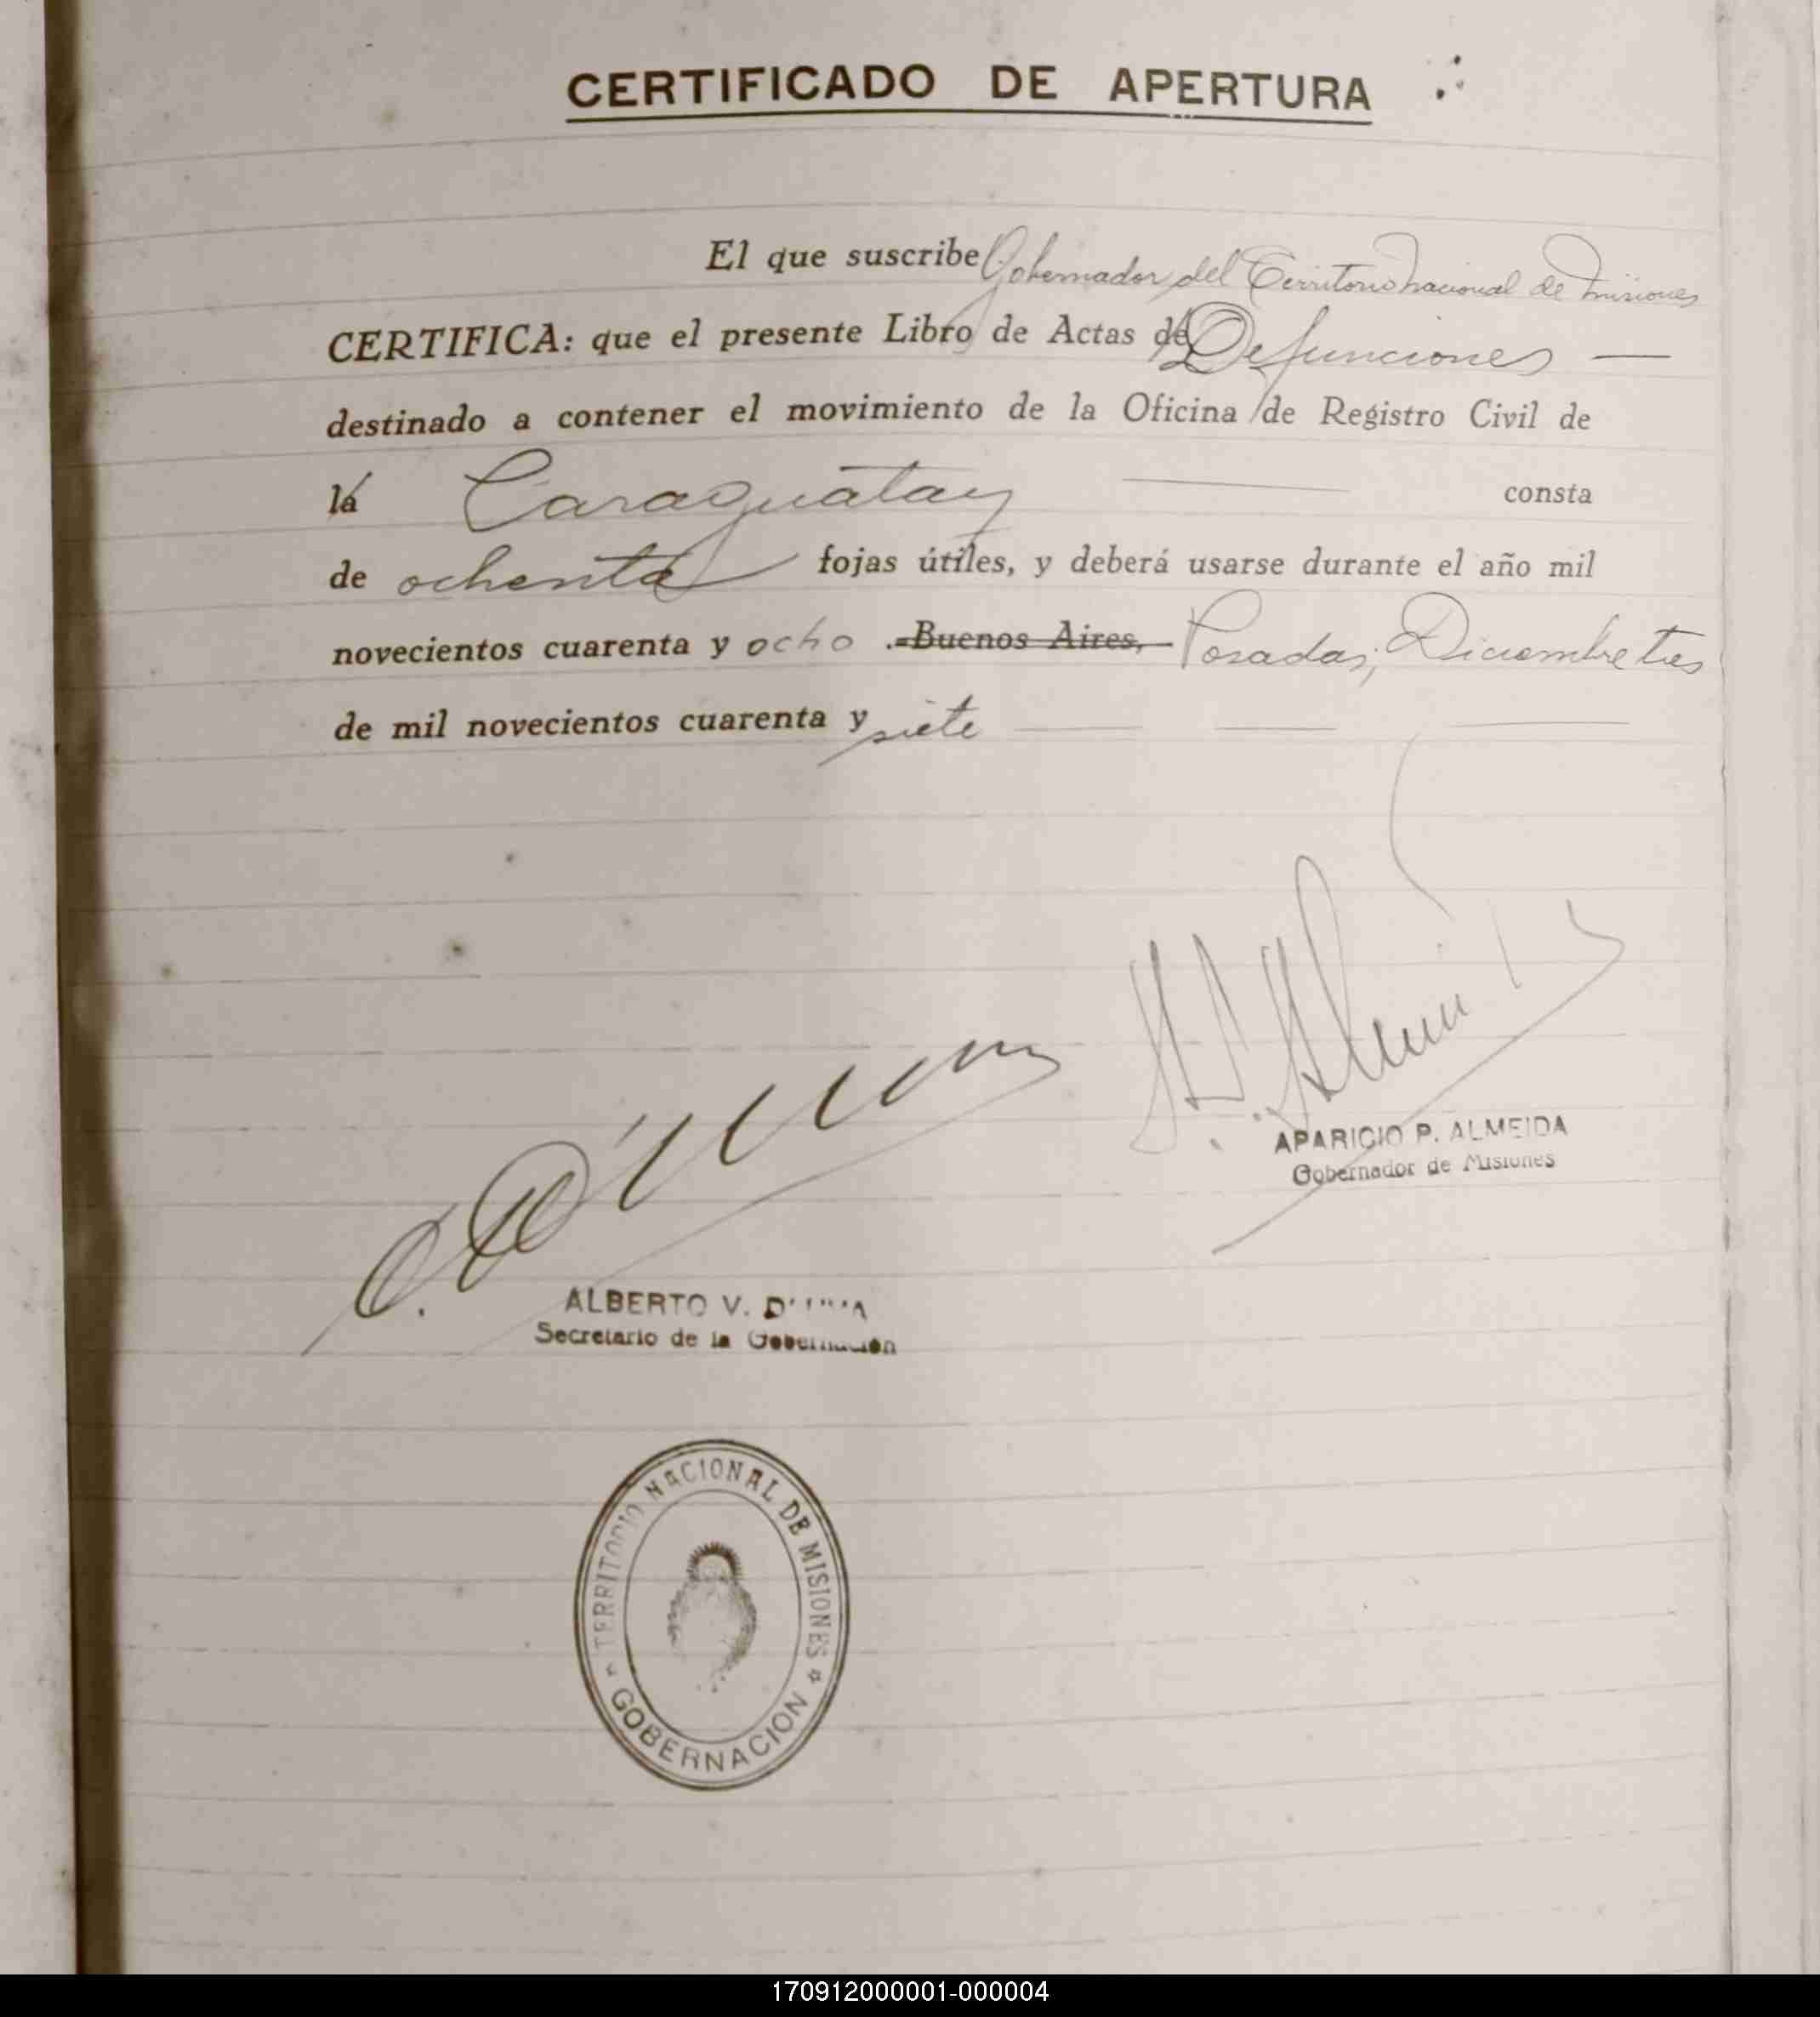 CERTIFICADO DE APERTURA
El que suscribe Gobernador del Territorio nacional de Misiones
CERTIFICA: que el presente Libro de Actas de Defunciones
destinado a contener el movimiento de la Oficina de Registro Civil de
la Caraguatay consta
de ochenta fojas útiles, y deberá usarse durante el año mil
novecientos cuarenta y ocho .-Buenos Aires, Posadas, Diciembre tres
de mil novecientos cuarenta y siete
APARICIO P. ALMEIDA
Gobernador de Misiones
ALBERTO V.
Secretario de la Gobernación
TERRITORIO NACIONAL DE MISIONES
GOBERNACION
170912000001-000004